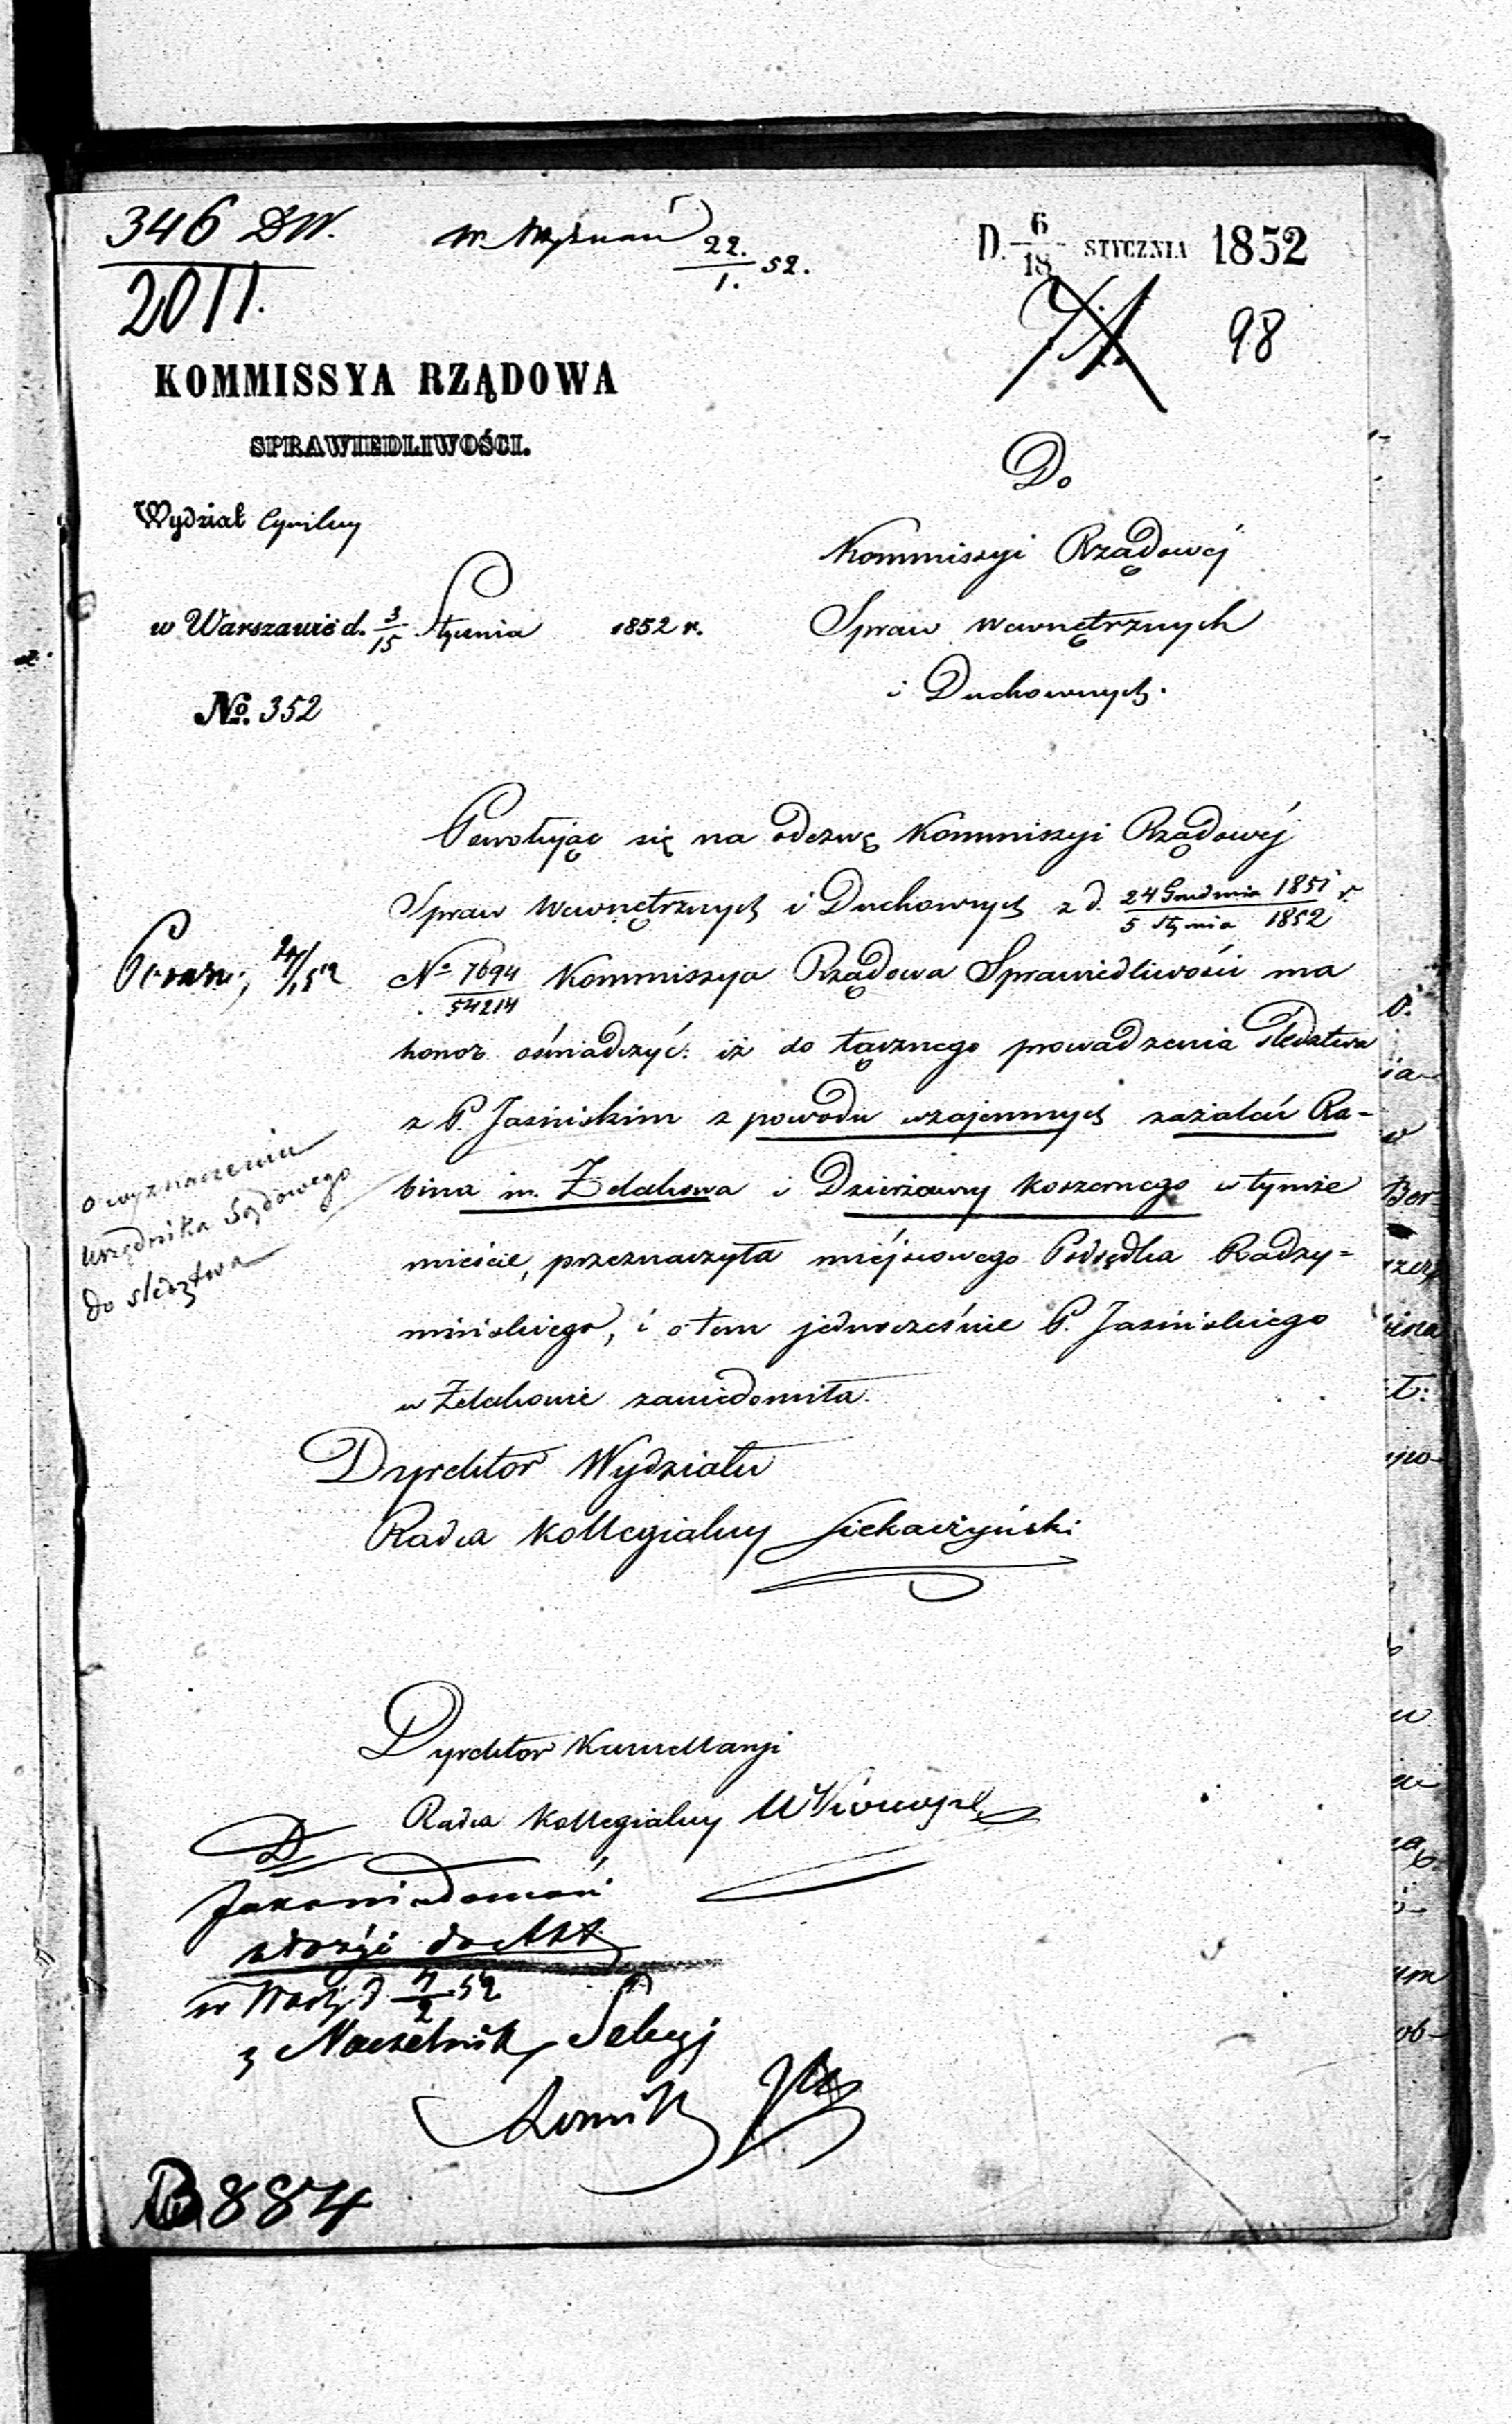 346 DW.
2011.
W. Wyznań 22./1. 52.
D. 6/18 STYCZNIA 1852
98
KOMMISSYA RZĄDOWA
SPRAWIEDLIWOŚCI.
Wydział Cywilny
w Warszawie d. 3/15 Stycznia 1852 r.
No. 352
Do
Kommissyi Rządowéj
Spraw Wewnętrznych
i Duchownych.
Powołując się na odezwę Kommissyi Rządowéj
Spraw Wewnętrznych i Duchownych z d. 24 Grudnia 1851/5 Stycznia 1852 r.
No 7694/54214 Kommissya Rządowa Sprawiedliwości ma
honor oświadczyć: iż do łącznego prowadzenia Śledztwa
z P. Jasińskim z powodu wzajemnych zażaleń Ra-
bina m. Żelechowa i Dzierżawcy koszernego w tymże
mieście, przeznaczyła miéjscowego Podsędka Radzy=
mińskiego, i o tem jednocześnie P. Jasińskiego
w Żelechowie zawiadomiła.
o wyznaczeniu
urzędnika Sądowego
do śledztwa
Dyrektor Wydziału
Radca Kollegialny
Dyrektor Kancellaryi
Radca Kollegialny
D
Jako wiadomość
złożyć do Akt
w Warsz. d 4/2 52
z Naczelnik Sekcyj
B884